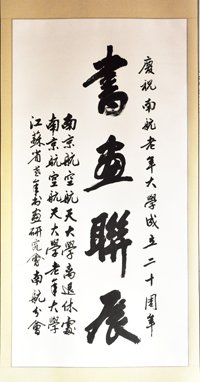 慶祝南航老年大學成立二十周年
書畫聯展
南京航空航天大學离退休處
南京航空航天大學老年大學
江蘇省老年书画研究會南航分會